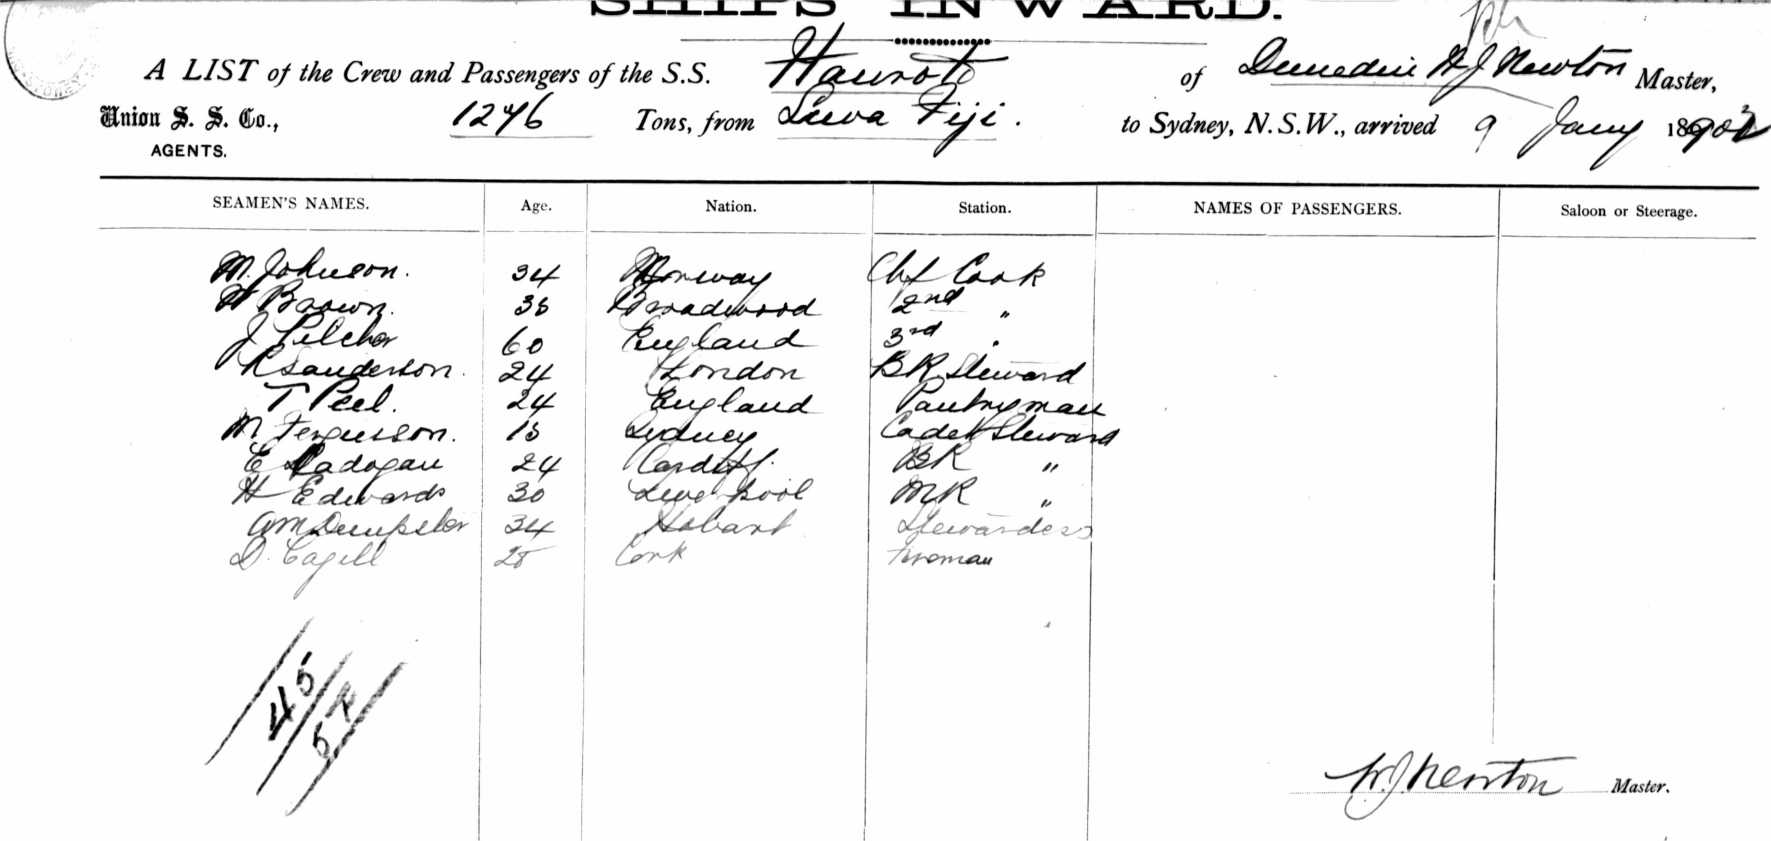 SHIPS INWARD.
A LIST of the Crew and Passengers of the S.S. Hauroto of Dunedin W J Newton Master,
Union S. S. Co., 1276 Tons, from Suva Fiji. to Sydney, N.S.W., arrived 9 Jany 1902
AGENTS.
SEAMEN'S NAMES. Age. Nation. Station. NAMES OF PASSENGERS. Saloon or Steerage.
M. Johnson. 34 Norway Chf Cook
H Brown. 38 Broadwood 2nd "
J Pilcher 60 England 3rd "
R Sanderson. 24 London BR Steward
T Peel. 24 England Pantryman
M Fergusson. 18 Sydney Cadet Steward
E Cadogan 24 Cardiff. BR "
H Edwards 30 Liverpool MR "
AM Dempster 34 Hobart Stewardess
D. Cagill 28 Cork Fireman
45
57
W. J. Newton Master.